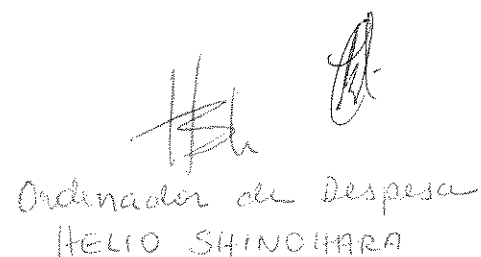 Ordenador de Despesa
HELIO SHINOHARA